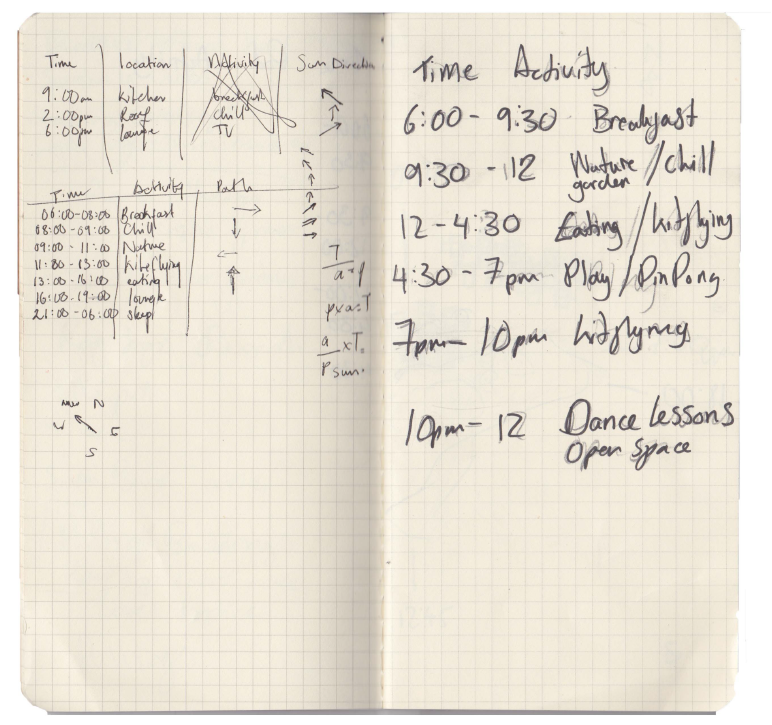 Time Location Activity Sun Direction
9:00am Kitchen breakfast
2:00pm Roof chill
6:00pm lounge TV
Time Activity Path
06:00-08:00 Breakfast
08:00-09:00 Chill
09:00 - 11:00 Nature
11:00 - 13:00 kiteflying
13:00-16:00 eating
16:00-19:00 lounge
21:00-06:00 sleep
T
a × p
p x a = T
a x T.
P sun.
N
W E
S
Time Activity
6:00 - 9:30 Breakfast
9:30 - 12 Nature / Chill
garden
12 - 4:30 Eating / kitflying
4:30 - 7pm Play / PinPong
7pm - 10pm kitflying
10pm - 12 Dance Lessons
Open Space